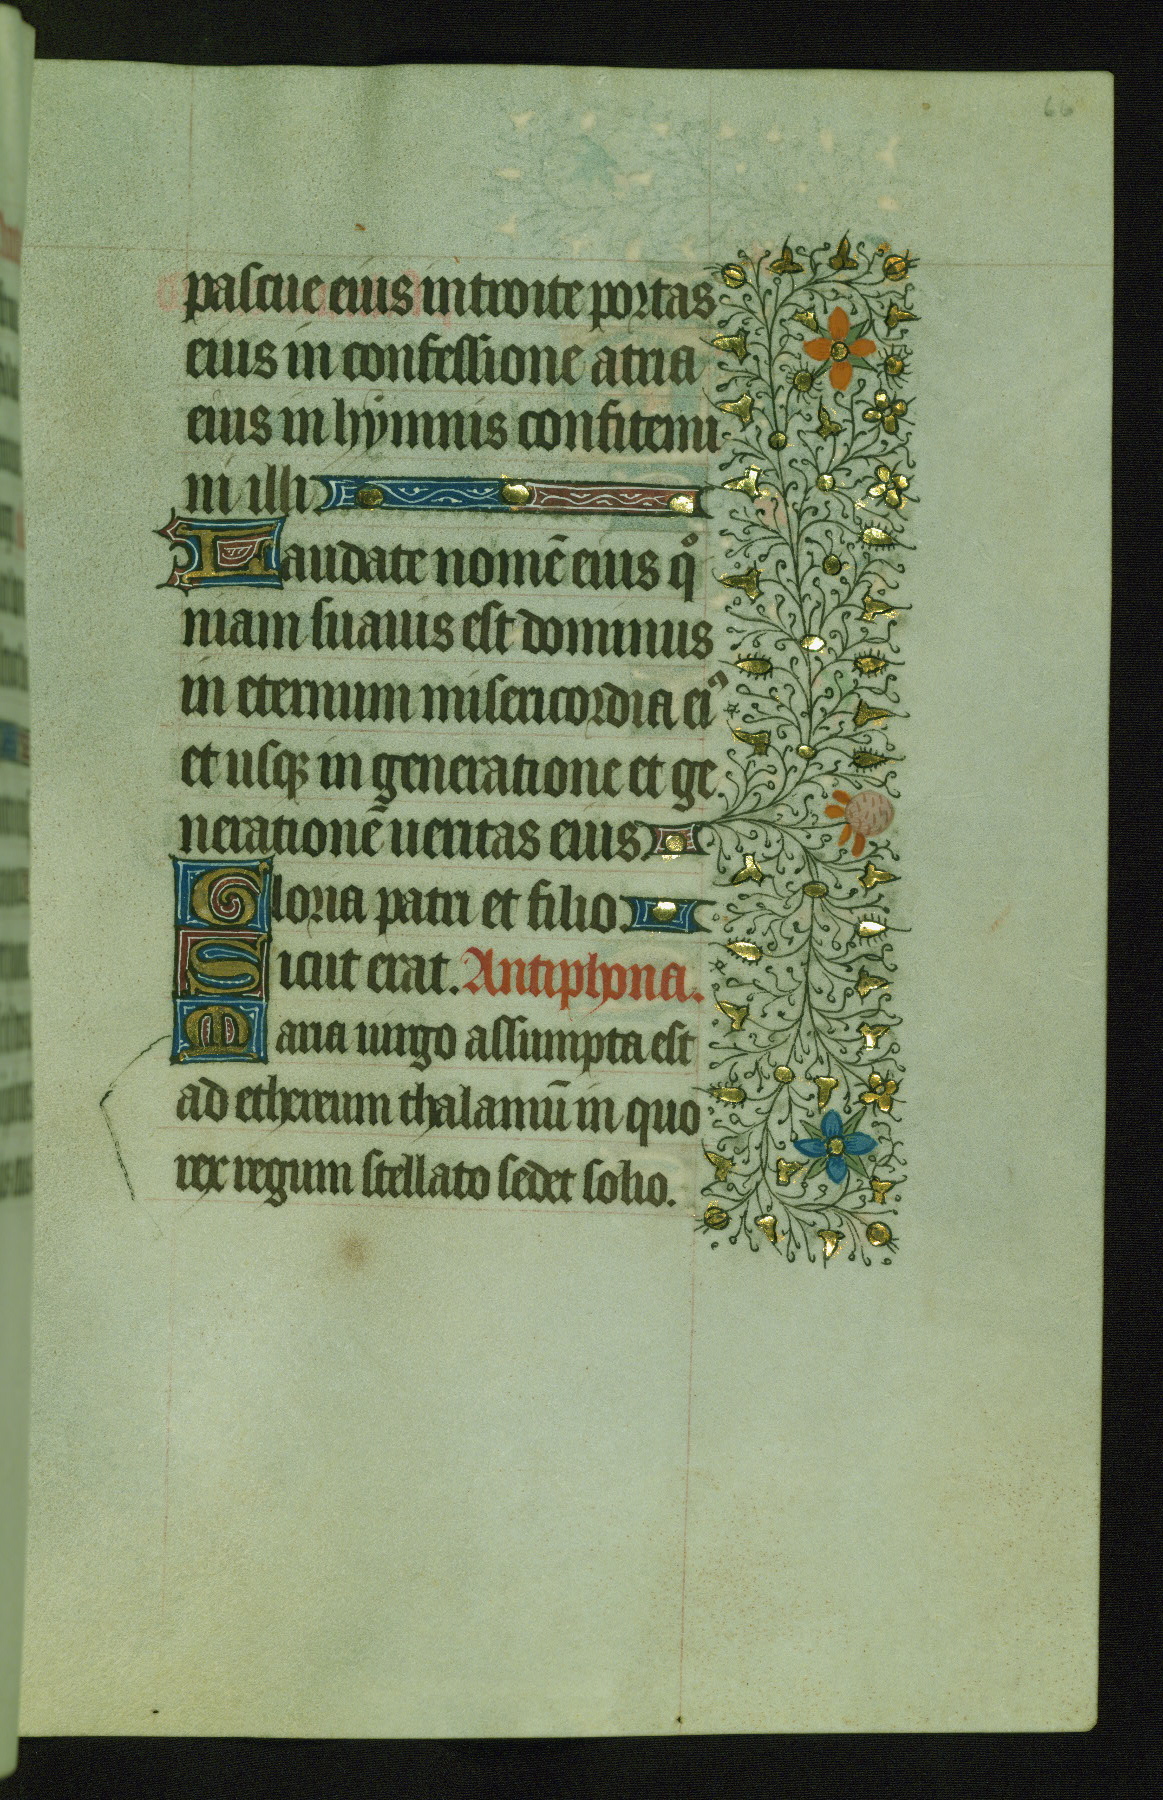 66
pascue eius introite portas
eius in confessione atria
eius in hymnis confitemi
ni illi
Laudate nomē eius qͦ
niam suauis est dominus
in eternum misericordia ei⁹
et usqꝫ in generatione et ge
nerationē ueritas eius
Gloria patri et filio
Sicut erat. Antiphona.
Maria uirgo assumpta est
ad ethereum thalamū in quo
rex regum stellato sedet solio.